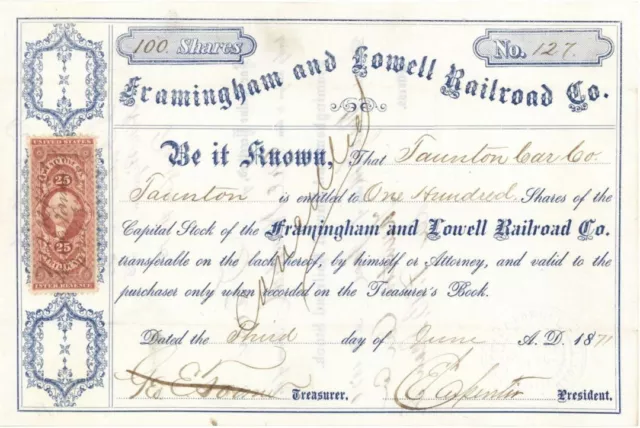 100 Shares
No. 127.
Framingham and Lowell Railroad Co.
Be it Known, That Taunton Car Co.
Taunton is entitled to One Hundred Shares of the
Capital Stock of the Framingham and Lowell Railroad Co.
transferable on the back hereof, by himself or Attorney, and valid to the
purchaser only when recorded on the Treasurer's Book.
Dated the Third day of June A. D. 1871
Treasurer.
President.
Cancelled
UNITED STATES
25
25
INTER. REVENUE